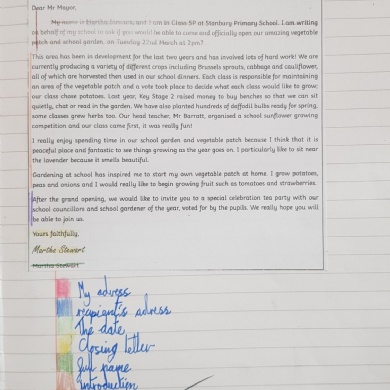 Dear Mr Mayor,
My name is Martha Stewart, and I am in Class 5P at Stanbury Primary School. I am writing
on behalf of my school to ask if you would be able to come and officially open our amazing vegetable
patch and school garden, on Tuesday 22nd March at 2pm?
This area has been in development for the last two years and has involved lots of hard work! We are
currently producing a variety of different crops including Brussels sprouts, cabbage and cauliflower,
all of which are harvested then used in our school dinners. Each class is responsible for maintaining
an area of the vegetable patch and a vote took place to decide what each class would like to grow;
our class chose potatoes. Last year, Key Stage 2 raised money to buy benches so that we can sit
quietly, chat or read in the garden. We have also planted hundreds of daffodil bulbs ready for spring,
some classes grew herbs too. Our head teacher, Mr Barratt, organised a school sunflower growing
competition and our class came first, it was really fun!
I really enjoy spending time in our school garden and vegetable patch because I think that it is
peaceful place and fantastic to see things growing as the year goes on. I particularly like to sit near
the lavender because it smells beautiful.
Gardening at school has inspired me to start my own vegetable patch at home. I grow potatoes,
peas and onions and I would really like to begin growing fruit such as tomatoes and strawberries.
After the grand opening, we would like to invite you to a special celebration tea party with our
school councillors and school gardener of the year, voted for by the pupils. We really hope you will
be able to join us.
Yours faithfully,
Martha Stewart
Martha Stewart
My adress
recipient's adress
The date
Closing letter
full name
Introduction